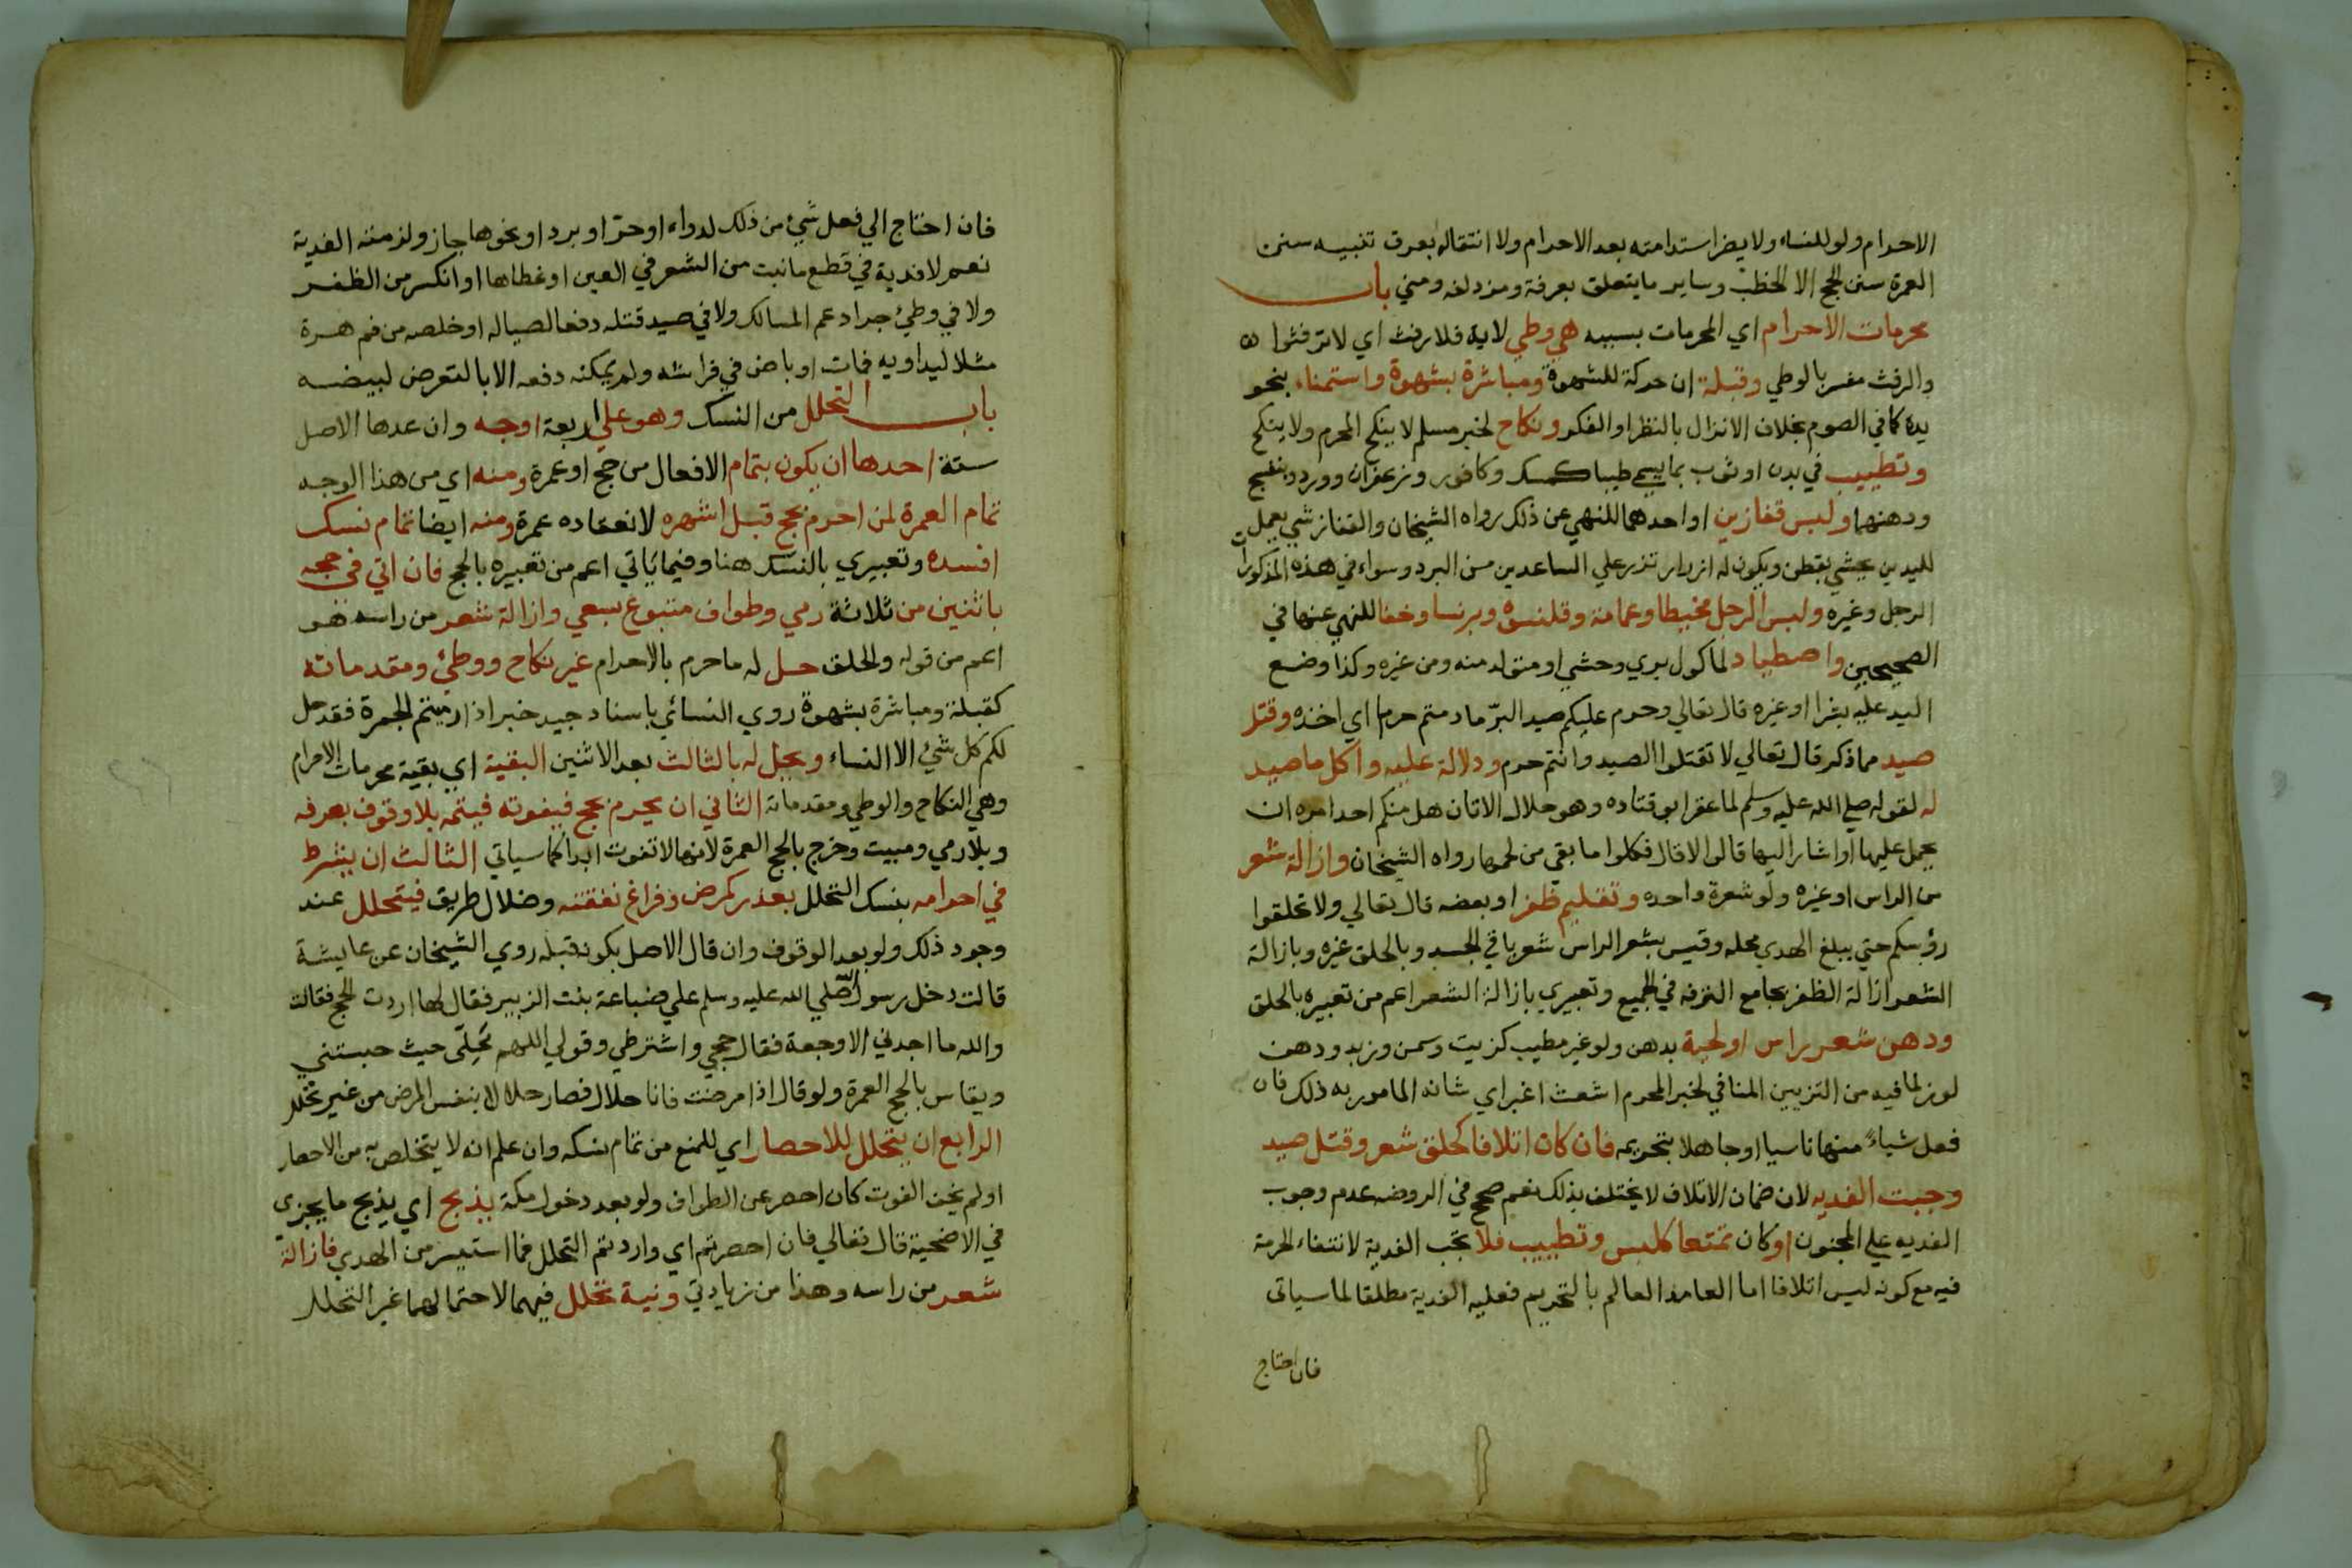 الاحرام ولو للنساء ولا يضر استدامته بعد الاحرام ولا انتقاله بعرق تنبيه سنن
العمرة سنن الحج الا الخطب وساير ما يتعلق بعرفة ومزدلفه ومني باب
محرمات الاحرام اي المحرمات بسببه هي وطي لاية فلا رفث اي لا ترفثوا
والرفث مفسر بالوطي وقبلة ان حركة للشهوة ومباشرة بشهوة واستمناء بنحو
يده كما في الصوم بخلاف الانزال بالنظر او الفكر ونكاح لخبر مسلم لا ينكح المحرم ولا ينكح
وتطييب في بدن او ثوب بما يسمي طيبا كمسك وكافور وزعفران وورد وبنفسج
ودهنهما ولبس قفازين او احدهما للنهي عن ذلك رواه الشيخان والقفاز شي يعمل
لليدين يحشي بقطن ويكون له ازرار تزر علي الساعدين من البرد وسواء في هذه المذكورات
الرجل وغيره ولبس الرجل مخيطا وعمامة وقلنسوة وبرنسا وخفا للنهي عنها في
الصحيحين واصطياد لماكول بري وحشي او متولد منه ومن غيره وكذا وضع
اليد عليه بشرا او غيره قال تعالي وحرم عليكم صيد البرّ ما دمتم حرما اي اخذه وقتل
صيد مما ذكر قال تعالي لا تقتلوا الصيد وانتم حرم ودلالة عليه واكل ما صيد
له لقوله صلي الله عليه وسلم لما عقر ابو قتاده وهو حلال الاتان هل منكم احد امره ان
يحمل عليها او اشار اليها قالوا لا قال فكلوا ما بقي من لحمها رواه الشيخان وازالة شعر
من الراس او غيره ولو شعرة واحده وتقليم ظفر او بعضه قال تعالي ولا تحلقوا
رؤسكم حتي يبلغ الهدي محله وقيس بشعر الراس شعر باقي الجسد وبالحلق غيره وبازالة
الشعر ازالة الظفر بجامع الترفه في الجميع وتعبيري بازالة الشعر اعم من تعبيره بالحلق
ودهن شعر راس او لحية بدهن ولو غير مطيب كزيت وسمن وزبد ودهن
لوز لما فيه من التزيين المنافي لخبر المحرم اشعث اغبر اي شانه المامور به ذلك فان
فعل شياءً منها ناسيا او جاهلا بتحريمه فان كان اتلافا كحلق شعر وقتل صيد
وجبت الفديه لان ضمان الاتلاف لا يختلف بذلك نعم صحح في الروضه عدم وجوب
الفديه علي المجنون او كان تمتعا كلبس وتطييب فلا تجب الفدية لانتفاء الحرمة
فيه مع كونه ليس اتلافا اما العامد العالم بالتحريم فعليه الفدية مطلقا لما سياتي
فان احتاج
فان احتاج الي فعل شئ من ذلك لدواء او حرّ او برد او نحوها جاز ولزمته الفدية
نعم لا فدية في قطع ما نبت من الشعر في العين او غطاها او انكسر من الظفر
ولا في وطئ جراد عم المسالك ولا في صيد قتله دفعا لصياله او خلصه من فم هرة
مثلا ليداويه فمات او باض في فراشه ولم يمكنه دفعه الا بالتعرض لبيضه
باب التحلل من النسك وهو علي اربعة اوجه وان عدها الاصل
ستة احدها ان يكون بتمام الافعال من حج او عمرة ومنه اي من هذا الوجه
تمام العمرة لمن احرم بحج قبل اشهره لانعقاده عمرة ومنه ايضا تمام نسك
افسده وتعبيري بالنسك هنا وفيما ياتي اعم من تعبيره بالحج فان اتي في حجه
باثنين من ثلاثة رمي وطواف متبوع بسعي وازالة شعر من راسه هو
اعم من قوله والحلق حل له ما حرم بالاحرام غير نكاح ووطئ ومقدماته
كقبلة ومباشرة بشهوة روي النسائي باسناد جيد خبر اذا رميتم الجمرة فقد حل
لكم كل شئ الا النساء ويحل له بالثالث بعد الاثنين البقية اي بقية محرمات الاحرام
وهي النكاح والوطي ومقدماته الثاني ان يحرم بحج فيفوته فيتمه بلا وقوف بعرفه
وبلا رمي ومبيت وخرج بالحج العمرة لانها لا تفوت ابدا كما سياتي الثالث ان يشرط
في احرامه بنسك التحلل بعذر كمرض وفراغ نفقته وضلال طريق فيتحلل عند
وجود ذلك ولو بعد الوقوف وان قال الاصل بكونه قبله روي الشيخان عن عايشة
قالت دخل رسول الله صلي الله عليه وسلم علي ضباعة بنت الزبير فقال لها اردت الحج فقالت
والله ما اجدني الا وجعة فقال حجي واشترطي وقولي اللهم تَحِلّى حيث حبستني
ويقاس بالحج العمرة ولو قال اذا مرضت فانا حلال فصار حلالا بنفس المرض من غير تحلل
الرابع ان يتحلل للاحصار اي للمنع من تمام نسكه وان علم انه لا يتخلص به من الاحصار
او لم يخف الفوت كان احصر عن الطواف ولو بعد دخول مكة بذبح اي يذبح ما يجزي
في الاضحية قال تعالي فان احصرتم اي واردتم التحلل فما استيسر من الهدي فازالة
شعر من راسه وهذا من زيادتي ونية تحلل فيهما لاحتمالهما غير التحلل